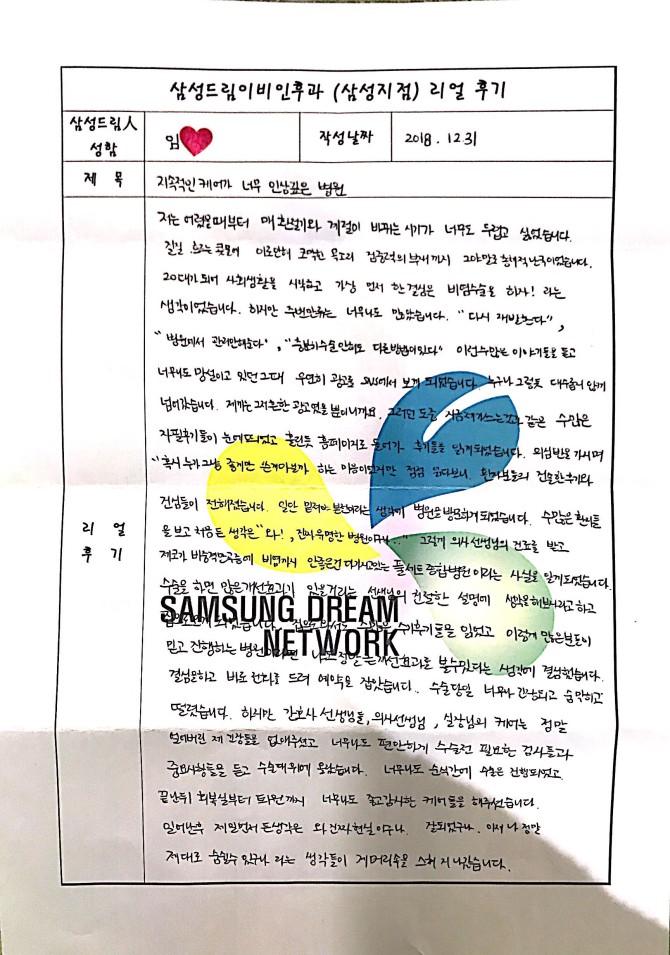 삼성드림이비인후과 (삼성지점) 리얼 후기
삼성드림人 성함
임
작성날짜
2018. 12 31
제 목
지속적인 케어가 너무 인상깊은 병원
리 얼 후 기
저는 어렸을때부터 매 환절기와 계절이 바뀌는 시기가 너무도 두렵고 싫었습니다.
흐르는 콧물에 코막힌 목소리 까지 그야말로 이었습니다.
20대가 되어 사회생활을 시작하고 가장 먼저 한 결심은 비염수술을 하자! 라는
생각이었습니다. 하지만 주변만류는 너무나도 많았습니다. "다시 재발한다",
"병원에서 관리안해준다", 이런수많은 이야기들을 듣고
너무나도 망설이고 있던 그때 우연히 광고를 SNS에서 보게 되었습니다. 누구나 그렇듯 대수롭지 않게
넘어갔습니다. 제게는 그저흔한 광고였을 뿐이니까요. 그러던 도중 같은 수많은
자필후기들이 눈에띄었고 홀린듯 홈페이지로 들어가 후기들을 읽게되었습니다. 의심반으로 가시며
"혹시 누가 그냥 하는 마음이었지만 점점 읽다보니, 환자분들의 진술한후기와
진심들이 전해졌습니다. 일단 생각에 병원을 방문하게 되었습니다. 수많은 환자들
을 보고 처음든 생각은 "와!, 진짜 유명한 병원이구나..." 그렇게 의사선생님의 진료를 받고
제코가 비염까지 안좋은건 다가지고있는 풀세트 종합병원 이라는 사실을 알게되었습니다.
수술을 하면 많은개선효과가 있을거라는 선생님의 친절한 설명에 생각을해보시라고 하고
SAMSUNG DREAM
NETWORK
수기후기들을 읽었고 이렇게 많은분들이
믿고 진행하는 병원이라면 나도 정말 큰개선효과를 볼수있다는 생각에 결심했습니다.
결심을하고 바로 전화를 드려 예약을 잡았습니다. 수술당일 너무나 긴장되고 숨막히고
떨렸습니다. 하지만 간호사 선생님들, 의사선생님, 실장님의 케어는 정말
얼어버린 제 긴장들을 없애주었고 너무나도 편안하게 수술전 필요한 검사들과
중요사항들을 듣고 수술대위에 올랐습니다. 너무나도 순식간에 수술은 진행되었고
끝난뒤 회복실부터 퇴원까지 너무나도 좋고감사한 케어들을 해주셨습니다.
일어난후 제일먼저 든생각은 와 진짜현실이구나. 잘되었구나. 이제 나 정말
제대로 숨쉴수 있구나 라는 생각들이 제머리속을 스쳐 지나갔습니다.